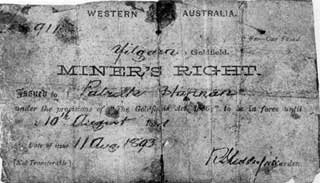 WESTERN AUSTRALIA.
911
Yilgarn Goldfield.
MINER'S RIGHT.
Issued to Patrick Hannan
under the provisions of "The Goldfields Act, to be in force until
10th August
Date of issue 11 Aug 1893
(Not Transferable) Warden.